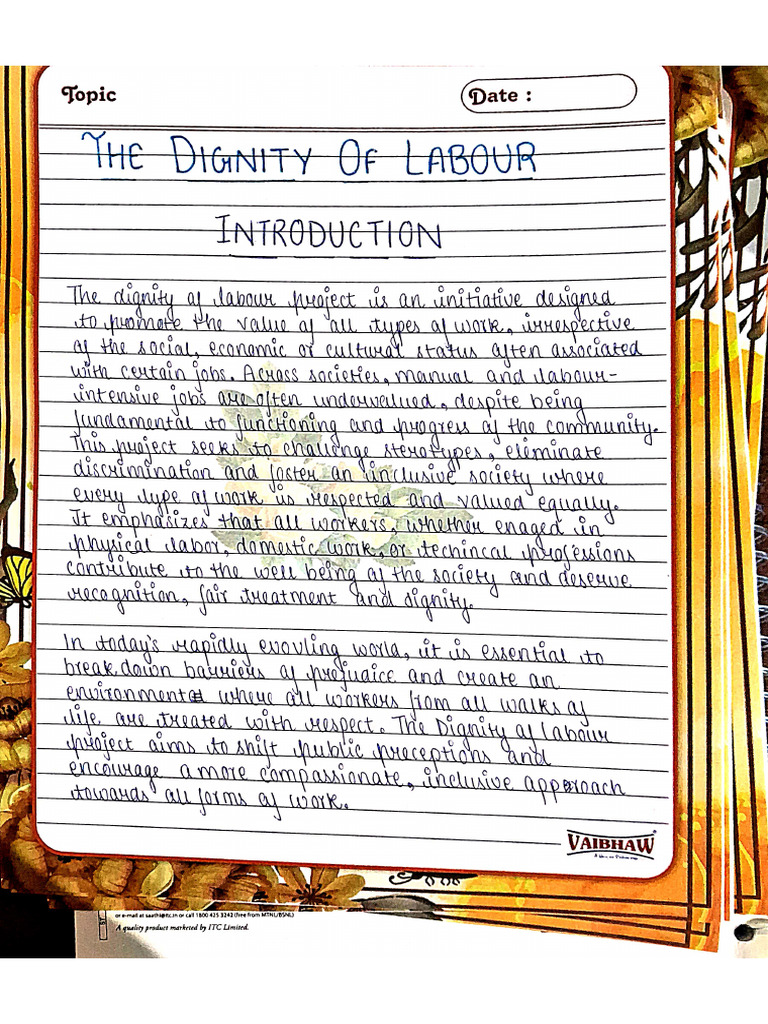 Topic
Date :
THE DIGNITY OF LABOUR
INTRODUCTION
The dignity of labour project is an initiative designed
to promote the value of all types of work, irrespective
of the social, economic or cultural status often associated
with certain jobs. Across societies, manual and labour-
intensive jobs are often undervalued, despite being
fundamental to functioning and progress of the community.
This project seeks to challenge sterotypes, eleminate
discrimination and foster an inclusive society where
every type of work is respected and valued equally.
It emphasizes that all workers, whether enaged in
physical labor, domestic work, or techincal professions
contribute to the well being of the society and deserve
recognition, fair treatment and dignity.
In today's rapidly evovling world, it is essential to
break down barriers of prejudice and create an
environment where all workers from all walks of
life are treated with respect. The Dignity of labour
project aims to shift public preceptions and
encourage a more compassionate, inclusive approach
towards all forms of work.
VAIBHAW
or e-mail at saathi@itc.in or call 1800 425 3242 (free from MTNL/BSNL)
A quality product marketed by ITC Limited.